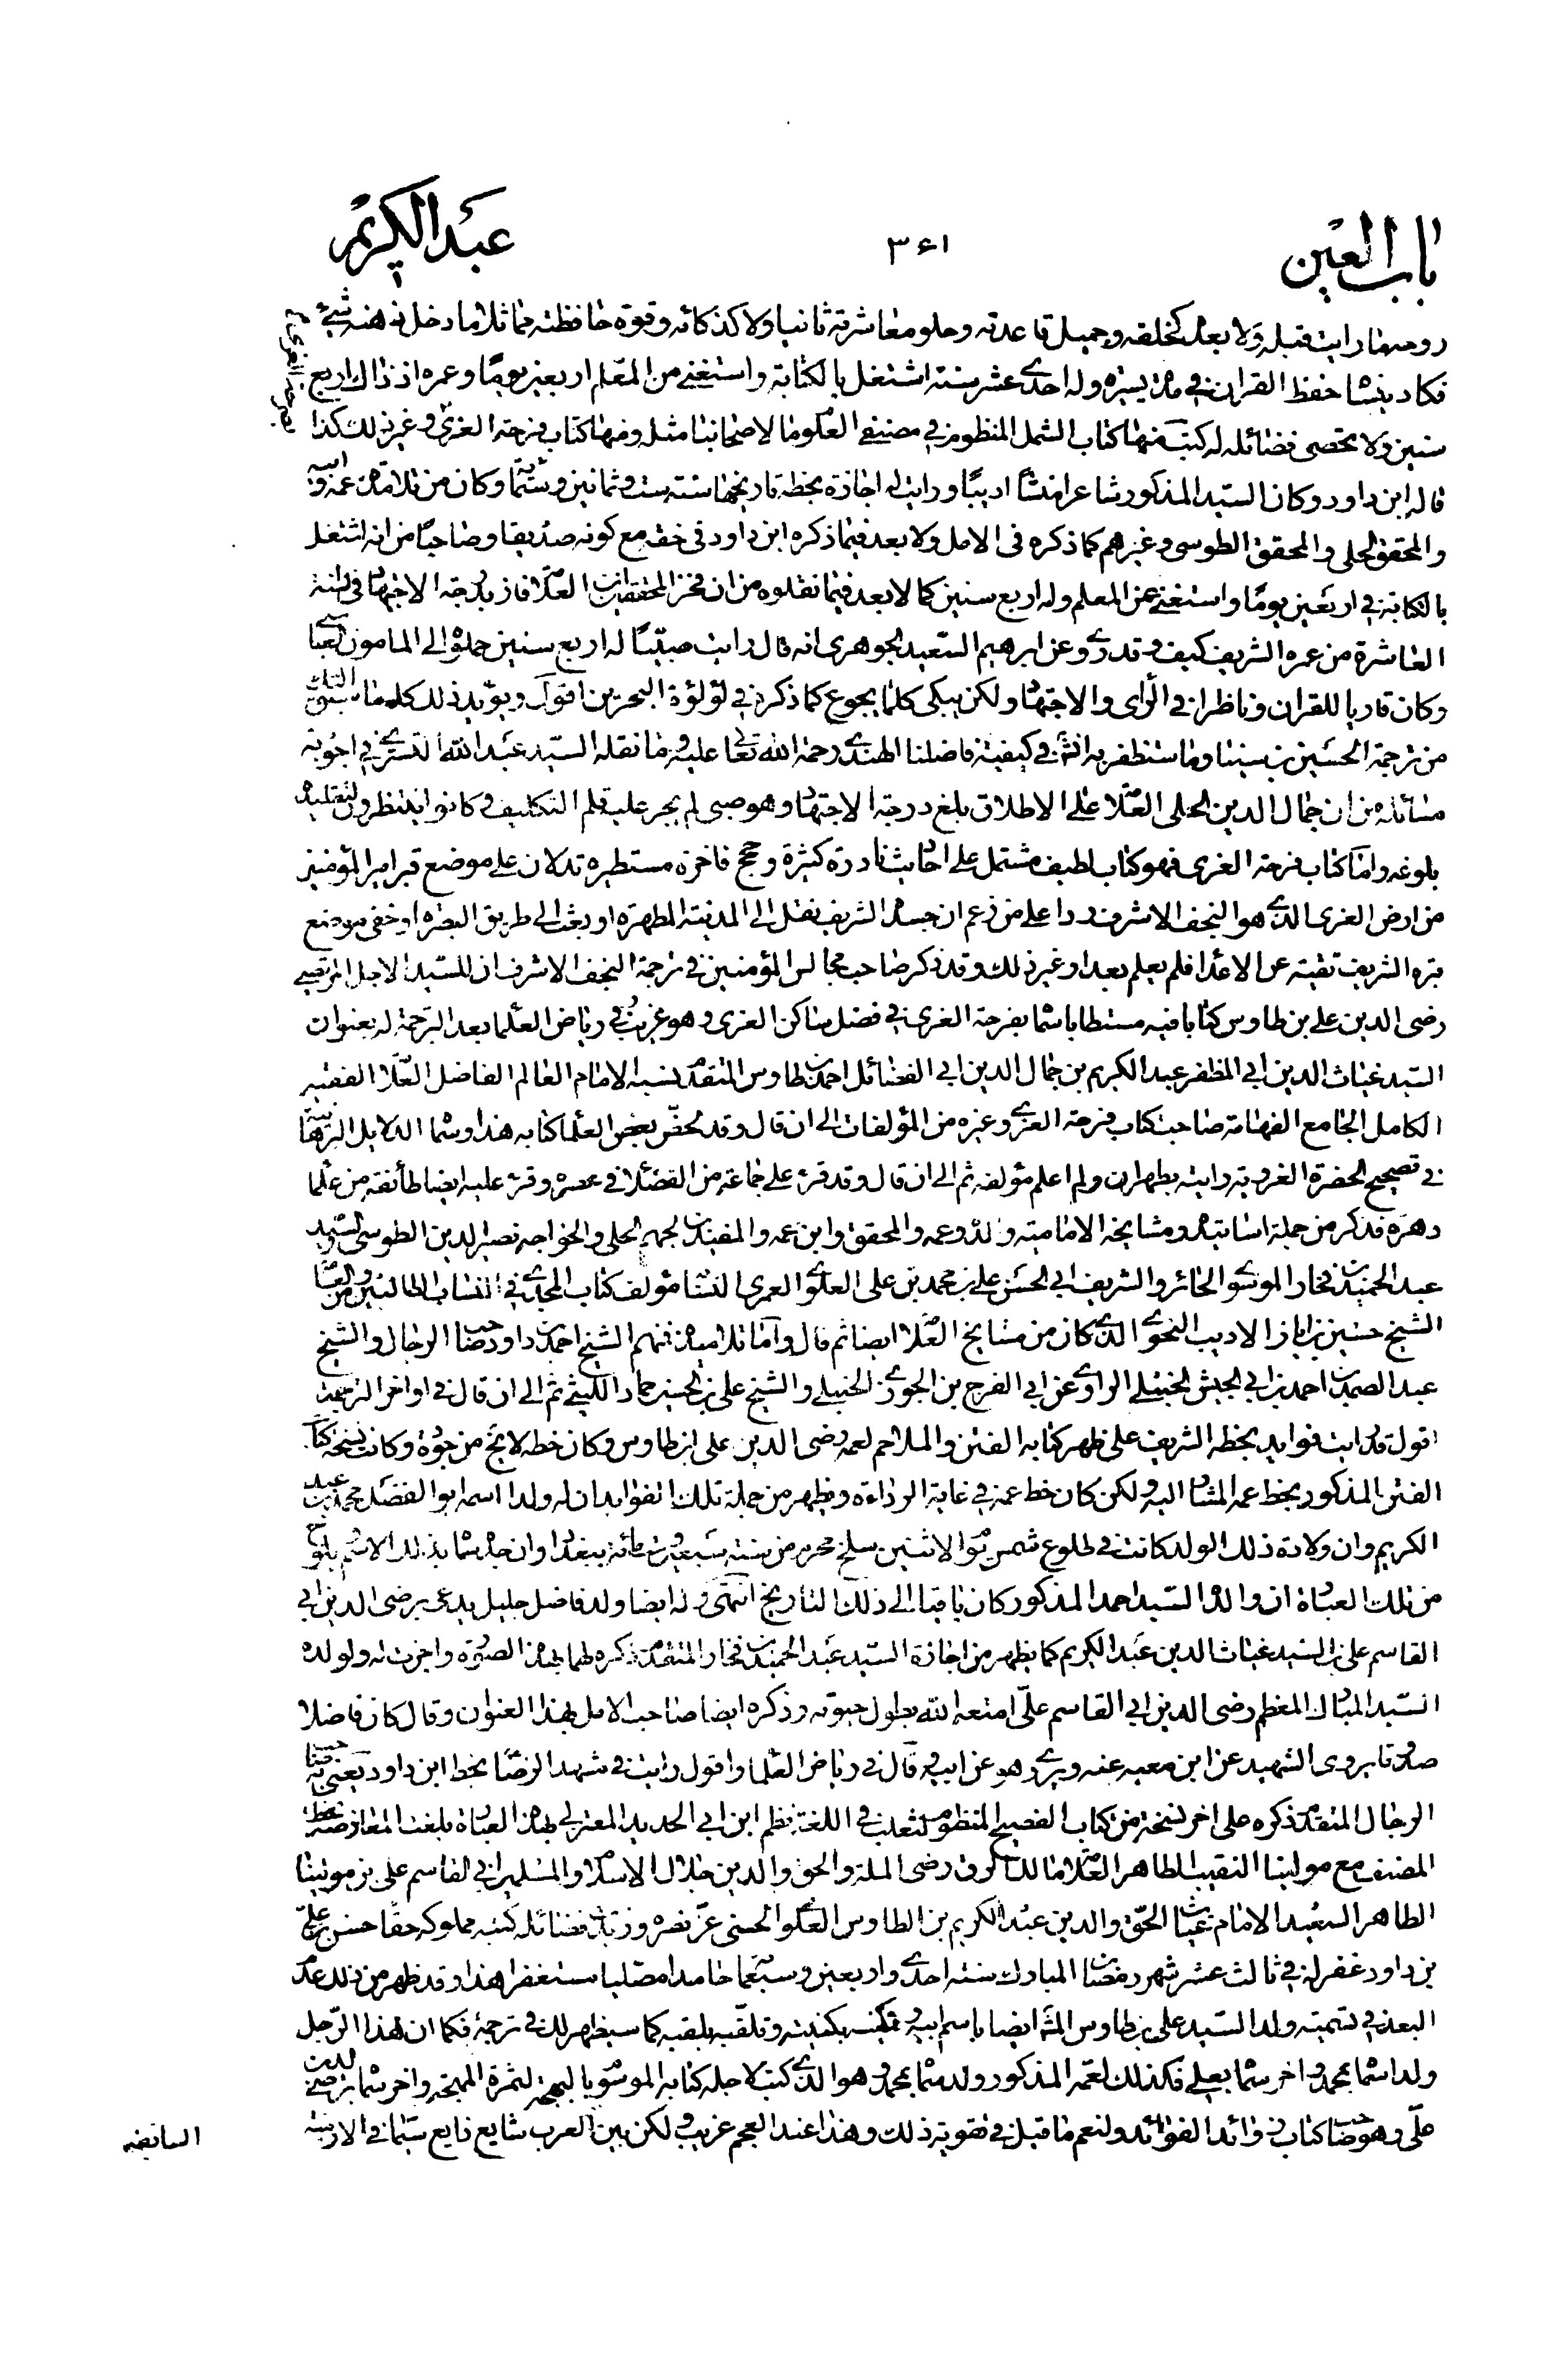 باب العين
٣٤١
عبد الكريم
روحهما رايت قبله ولا بعده كخلقه وجميل قاعدته وحلو معاشرته ثانيا ولا كذكائه وقوة حافظته مماثلا ما دخل ذهنه شئ
فكاد ينساه حفظ القران في مدة يسيره وله احدى عشر سنة اشتغل بالكتابة واستغنى من المعلم اربعين يوما وعمره اذ ذاك اربع
سنين ولا تحصى فضائله له كتب منها كتاب الشمل المنظوم في مصنفي العلوم ما لاصحابنا مثله ومنها كتاب فرحة الغرى وغير ذلك كذا
قاله ابن داود وكان السيد المذكور شاعرا منشأ اديبا ورايت له اجازة بخطه تاريخها سنة ست وثمانين وستمأة وكان من تلامذة عمه وابيه
والمحقق الحلى والمحقق الطوسى وغيرهم كما ذكره فى الامل ولا بعد فيما ذكره ابن داود في حقه مع كونه صديقا وصاحبا من انه اشتغل
بالكتابة في اربعين يوما واستغنى عن المعلم وله اربع سنين كما لا بعد فيما نقلوه من ان فخر المحققين ابن العلامة فاز بدرجة الاجتهاد في السنة
العاشرة من عمره الشريف كيف وقد روى عن ابرهيم السعيد الجوهرى انه قال رايت صبيا له اربع سنين حملوه الى المامون العباسى
وكان قاريا للقران وناظرا في الراى والاجتهاد ولكن يبكى كلما يجوع كما ذكره في لؤلؤة البحرين اقول ويؤيد ذلك كله ما سبق لك
من ترجمة الحسين بن سينا وما ستظفر به انشاء في كيفية فاضلنا الهندى رحمة الله تعالى عليه وما نقله السيد عبد الله التستري في اجوبة
مسائله من ان جمال الدين الحلى العلامة على الاطلاق بلغ درجة الاجتهاد وهو صبى لم يجر عليه قلم التكليف وكانوا ينتظرون لتقليده
بلوغه واما كتاب فرحة الغرى فهو كتاب لطيف مشتمل على احاديث نادرة كثيرة وحجج فاخرة مستطيرة تدلان على موضع قبر امير المؤمنين
من ارض الغرى الذى هو النجف الاشرف ردا على من زعم ان جسده الشريف نقل الى المدينة المطهرة او بعث الى طريق البصره او خفى موضع
قبره الشريف تقية عن الاعداء فلم يعلم بعد او غير ذلك وقد ذكر صاحب مجالس المؤمنين في ترجمة النجف الاشرف ان للسيد الاجل المرتضى
رضى الدين على بن طاوس كتابا فيه مستطابا سماه بفرحة الغرى في فضل ساكن الغرى وهو غريب وفي رياض العلماء بعد الترجمة له بعنوان
السيد غياث الدين ابى المظفر عبد الكريم بن جمال الدين ابى الفضائل احمد بن طاوس المتقدم نسبه الامام العالم الفاضل العلامة الفقيه
الكامل الجامع الفهامة صاحب كتاب فرحة الغرى وغيره من المؤلفات الى ان قال وقد لخص بعض العلماء كتابه هذا وسماه الدلايل البرهانية
في تصحيح الحضرة الغروية رايته بطهران ولم اعلم مؤلفه ثم الى ان قال وقد قرء على جماعة من الفضلاء في عصره وقرء عليه ايضا طائفة من علماء
دهره فذكر من جملة اساتيده ومشايخه الامامية والده وعمه والمحقق وابن عمه والمفيد بن الجهم الحلى والخواجه نصير الدين الطوسى والسيد
عبد الحميد بن فخار الموسوى الحائرى والشريف ابى الحسن على بن محمد بن على العلوى العمرى النسابة مؤلف كتاب المجدى في انساب الطالبيين ومن العامة
الشيخ حسين بن اياز الاديب النحوى الذى كان من مشايخ العلامة ايضا ثم قال واما تلامذته فمنهم الشيخ احمد بن داود صاحب الرجال والشيخ
عبد الصمد بن احمد بن ابى الجيش الحنبلى الراوى عن ابى الفرج بن الجوزى الحنبلى والشيخ على بن الحسين حماد الليثى ثم الى ان قال في اواخر الترجمة
اقول قد رايت فوايد بخطه الشريف على ظهر كتابه الفتن والملاحم لعمه رضى الدين على بن طاوس وكان خطه لا يخ من جودة وكانت نسخة كتاب
الفتن المذكور بخط عمه المشار اليه ولكن كان خط عمه في غاية الرداءة ويظهر من جملة تلك الفوايد ان له ولدا اسمه ابو الفضل محمد بن عبد
الكريم وان ولادة ذلك الولد كانت في طلوع شمس يوم الاثنين سلخ محرم من سنة سبعين وستمائة ببغداد وان جده سماه بذلك الاسم يلوح
من تلك العبارة ان والده السيد احمد المذكور كان باقيا الى ذلك التاريخ انتهى وله ايضا ولد فاضل جليل يدعى برضى الدين ابى
القاسم على بن السيد غياث الدين عبد الكريم كما يظهر من اجازة السيد عبد الحميد بن فخار المتقدم ذكره لهما بهذه الصورة واجزت له ولولده
السيد المبارك المعظم رضى الدين ابى القاسم على امتعه الله بطول حيوته وذكره ايضا صاحب الامل بهذا العنوان وقال كان فاضلا
صدوقا يروى الشهيد عن ابن معيه عنه ويروى هو عن ابيه وقال في رياض العلماء واقول رايت في مشهد الرضا بخط ابن داود يعنى به صاحب
الرجال المتقدم ذكره على اخر نسخة من كتاب الفصيح المنظوم لثعلب في اللغة نظم ابن ابى الحديد المعتزلى بهذه العبارة بلغت المعارضة بخط
المصنف مع مولينا النقيب الطاهر العلامة مالك الرق رضى الملة والحق والدين جلال الاسلام والمسلمين ابى القاسم على بن مولينا
الطاهر السعيد الامام غياث الحق والدين عبد الكريم بن الطاوس العلوى الحسنى عز نصره وزيدت فضائله كتبه مملوكه حقا حسن بن على
بن داود غفر له في ثالث عشر شهر رمضان المبارك سنة احدى واربعين وسبعمأة حامدا مصليا مستغفرا هذا وقد ظهر من ذلك عدم
البعد في تسميته ولد السيد على بن طاوس المشار ايضا باسم ابيه وتكنيه بكنيته وتلقبه بلقبه كما سيظهر لك في ترجمته فكما ان لهذا الرجل
ولدا سماه بمحمد واخر سماه بعلى فكذلك لعمه المذكور ولد سماه بمحمد وهو الذى كتب لاجله كتابه الموسوم بالبهجة لثمرة المهجة واخر سماه برضى الدين
على وهو صاحب كتاب زوائد الفوائد ولنعم ما قيل في تقوية ذلك وهذا عند العجم غريب ولكن بين العرب شايع ذايع سيما في الازمنة
السابقه